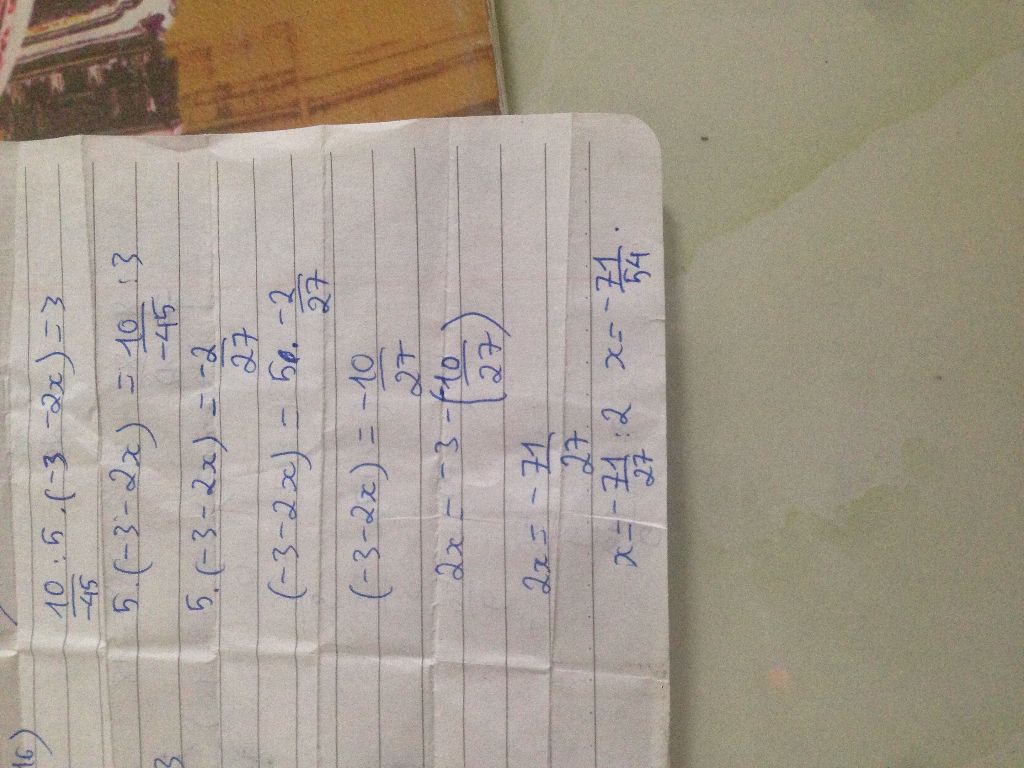 16)
3
10/-45 : 5 . (-3 -2x) = 3
5 . (-3 - 2x) = 10/-45 : 3
5 . (-3 - 2x) = -2/27
(-3 - 2x) = 5 . -2/27
(-3 - 2x) = -10/27
2x = -3 - (-10/27)
2x = -71/27
x = -71/27 : 2 x = -71/54 .